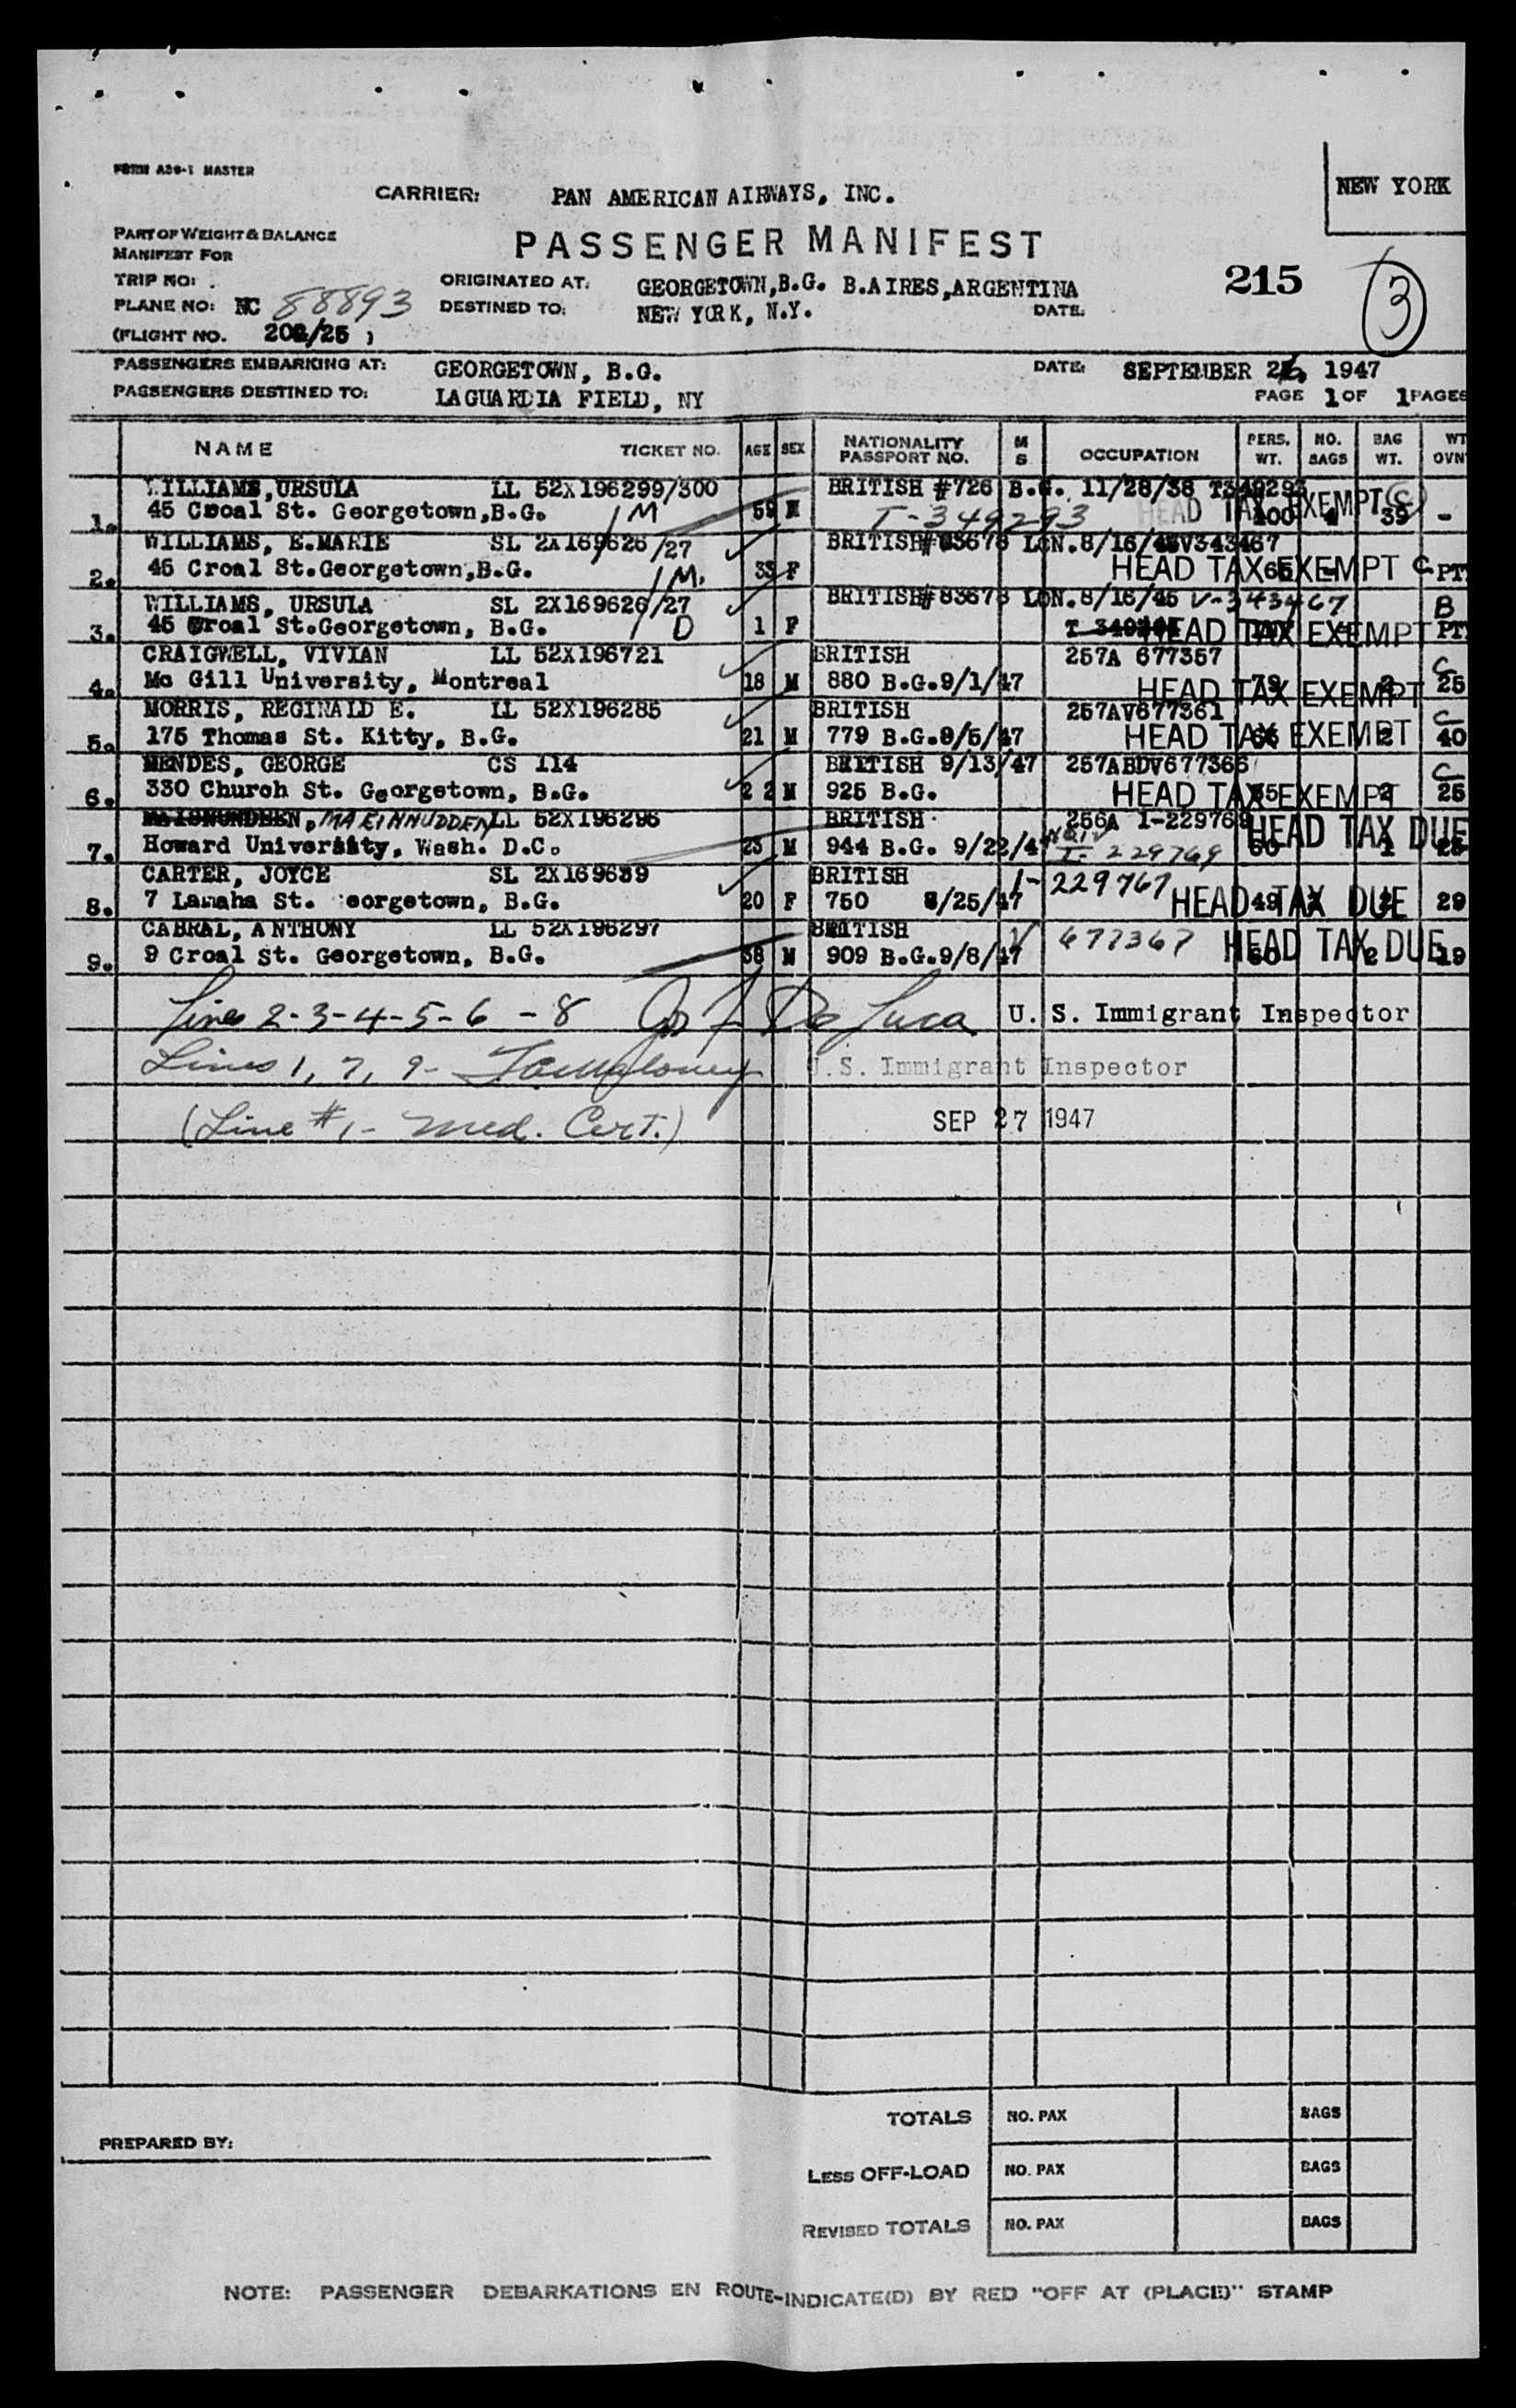 FORM A30-1 MASTER
CARRIER: PAN AMERICAN AIRWAYS, INC.
NEW YORK
PART OF WEIGHT & BALANCE
MANIFEST FOR
PASSENGER MANIFEST
TRIP NO:
ORIGINATED AT: GEORGETOWN, B.G. B.AIRES, ARGENTINA
215
3
PLANE NO: NC 88893
DESTINED TO: NEW YORK, N.Y. DATE:
(FLIGHT NO. 202/25 )
PASSENGERS EMBARKING AT: GEORGETOWN, B.G. DATE: SEPTEMBER 26, 1947
PASSENGERS DESTINED TO: LAGUARDIA FIELD, NY PAGE 1 OF 1 PAGES
NAME TICKET NO. AGE SEX NATIONALITY PASSPORT NO. M S OCCUPATION PERS. WT. NO. BAGS BAG WT. WT OVN
WILLIAMS, URSULA LL 52X196299/300 BRITISH #726 B.G. 11/28/38 T349293
1. 45 Croal St. Georgetown, B.G. 1M 59 T-349293 HEAD TAX EXEMPT C 100 39 -
WILLIAMS, E.MARIE SL 2X169626/27 BRITISH #83678 LON. 8/16/45 V343467
2. 45 Croal St. Georgetown, B.G. 1M. 33 F HEAD TAX EXEMPT 65 C PT
WILLIAMS, URSULA SL 2X169626/27 BRITISH #83678 LON. 8/16/45 V-343467 B
3. 45 Croal St. Georgetown, B.G. 1D 1 F HEAD TAX EXEMPT PT
CRAIGWELL, VIVIAN LL 52X196721 BRITISH 257A 677357 C
4. Mc Gill University, Montreal 18 M 880 B.G. 9/1/47 HEAD TAX EXEMPT 79 2 25
MORRIS, REGINALD E. LL 52X196285 BRITISH 257AV677361 C
5. 175 Thomas St. Kitty, B.G. 21 M 779 B.G. 9/5/47 HEAD TAX EXEMPT 66 2 40
MENDES, GEORGE CS 114 BRITISH 9/13/47 257ABDV677366 C
6. 330 Church St. Georgetown, B.G. 22 M 925 B.G. HEAD TAX EXEMPT 2 25
MAEINNUDDEN LL 52X196296 BRITISH 256A I-229769 HEAD TAX DUE
7. Howard University, Wash. D.C. 23 M 944 B.G. 9/22/47 I-229769 60 1 25
CARTER, JOYCE SL 2X169639 BRITISH I-229767
8. 7 Lamaha St. Georgetown, B.G. 20 F 750 8/25/47 HEAD TAX DUE 49 29
CABRAL, ANTHONY LL 52X196297 BRITISH V 677367
9. 9 Croal St. Georgetown, B.G. 38 M 909 B.G. 9/8/47 HEAD TAX DUE 60 2 19
Lines 2-3-4-5-6 - 8 Jos F. De Luca U. S. Immigrant Inspector
Lines 1, 7, 9- U.S. Immigrant Inspector
(Line #1- Med. Cert.) SEP 27 1947
TOTALS NO. PAX BAGS
PREPARED BY:
LESS OFF-LOAD NO. PAX BAGS
REVISED TOTALS NO. PAX BAGS
NOTE: PASSENGER DEBARKATIONS EN ROUTE-INDICATE(D) BY RED "OFF AT (PLACE)" STAMP